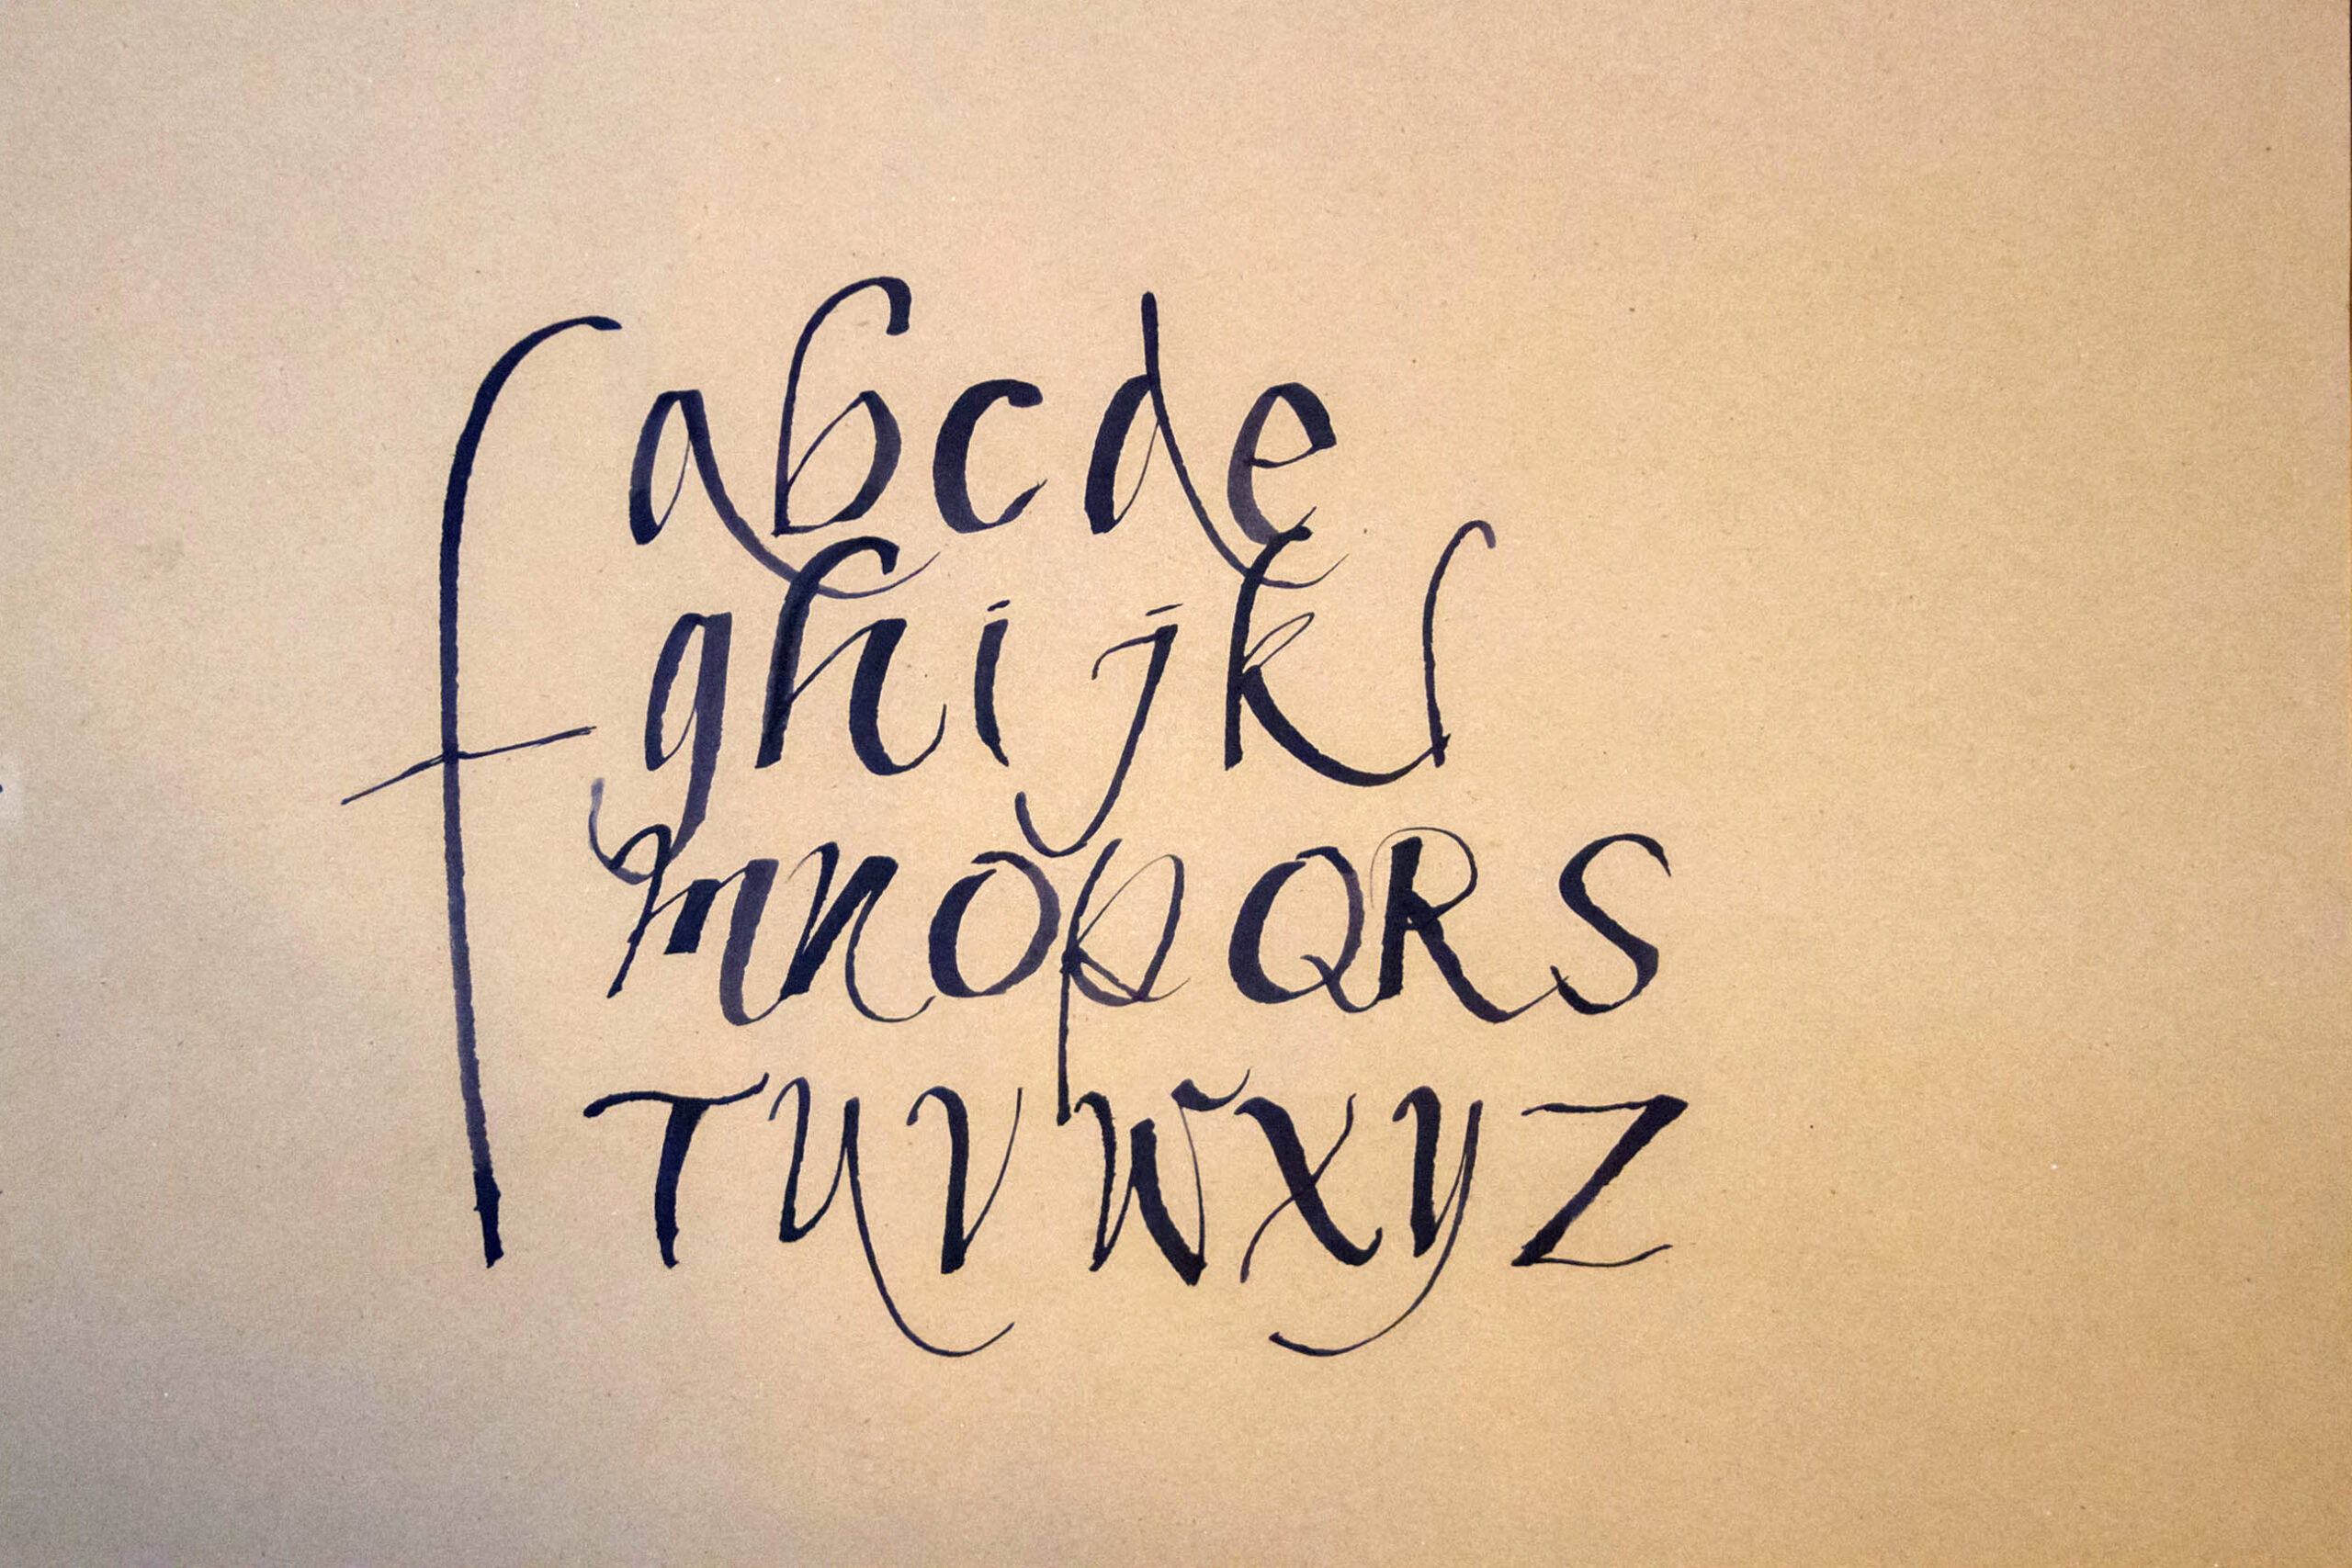 f
abcde
ghijkl
mnopQRS
TUVWXYZ